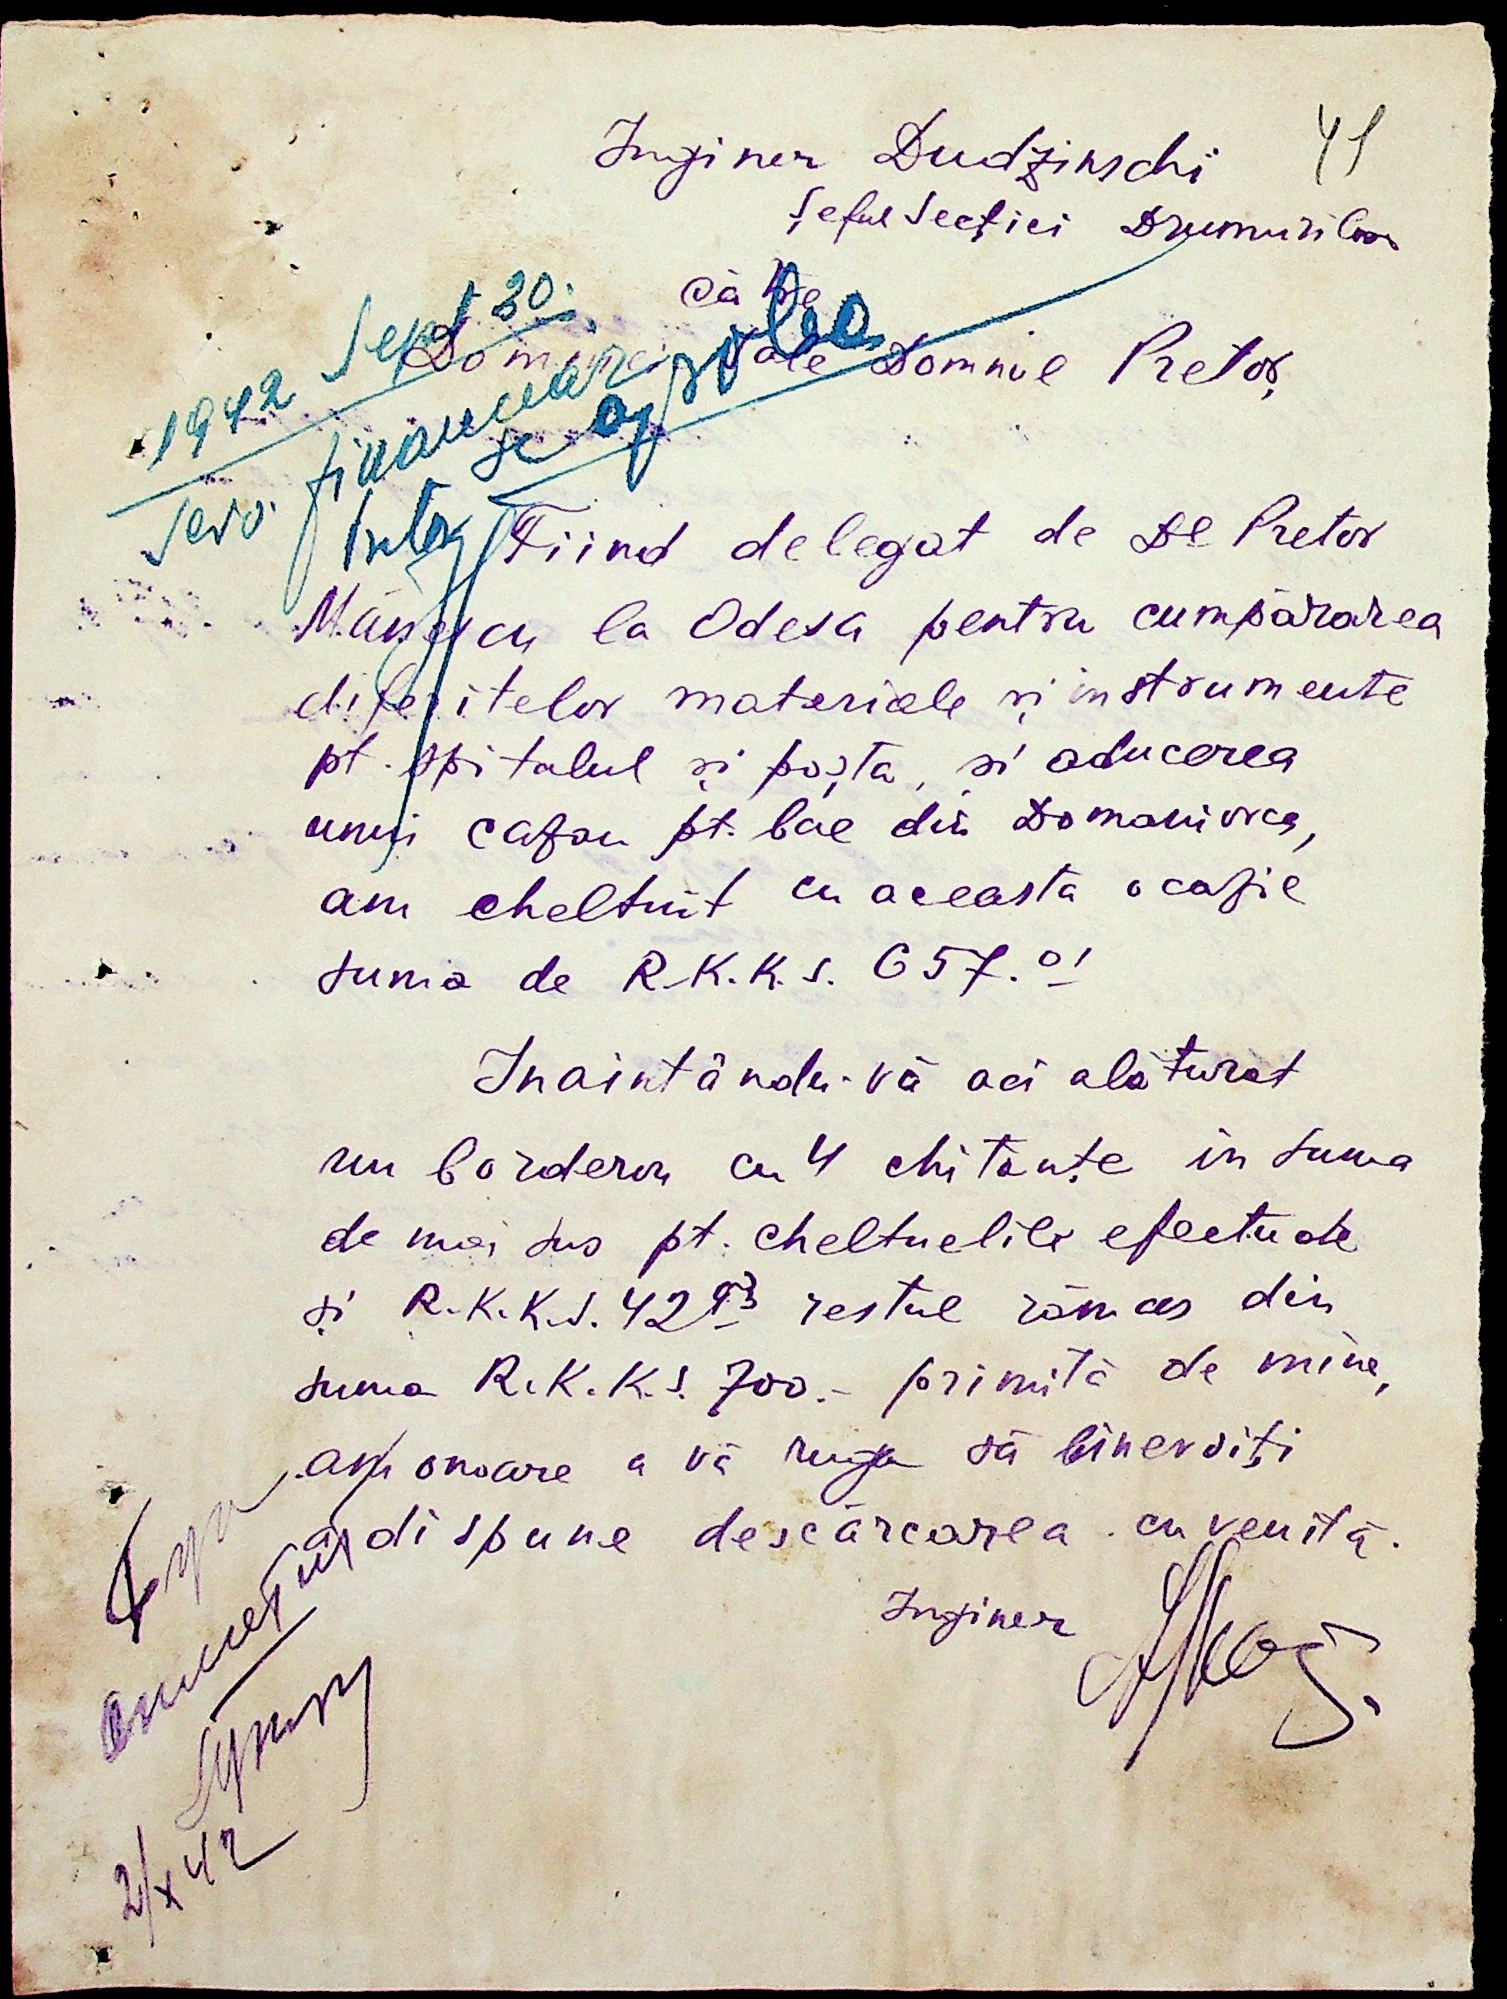 41
Inginer Dudzinschi
Șeful Secției Drumurilor
către
Domniei Tale Domnule Pretor,
1942 Sept 30.
Serv. financiar
se aproba
Pretor
Fiind delegat de Dl Pretor
Mănescu la Odesa pentru cumpărarea
diferitelor materiale și instrumente
pt. spitalul și poșta, și aducerea
unui cazan pt. bae din Domaniovca,
am cheltuit cu aceasta ocazie
suma de R.K.K.S. 657.01
Inaintându-vă aci alăturat
un borderou cu 4 chitanțe in suma
de mai sus pt. cheltuelile efectuate
și R.K.K.S. 42 93 restul rămas din
suma R.K.K.S. 700.- primită de mine,
am onoare a vă ruga să binevoiți
a dispune descărcarea cuvenită.
Inginer
2/X 42